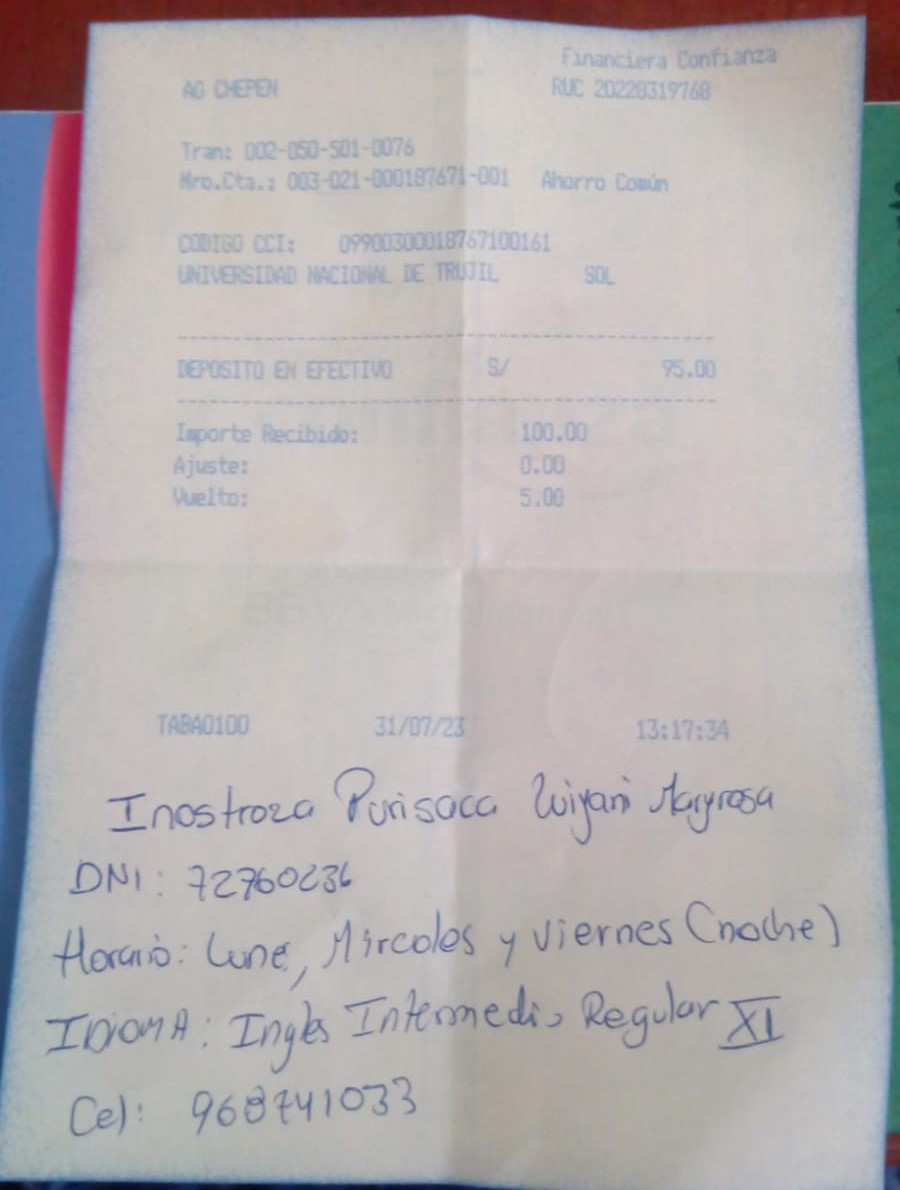 Financiera Confianza
AG CHEPEN RUC 20228319768
Tran: 002-050-501-0076
Nro.Cta.: 003-021-000187671-001 Ahorro Común
CODIGO CCI: 09900300018767100161
UNIVERSIDAD NACIONAL DE TRUJIL SOL
DEPOSITO EN EFECTIVO S/ 95.00
Importe Recibido: 100.00
Ajuste: 0.00
Vuelto: 5.00
BBVA
TABA0100 31/07/23 13:17:34
Inostroza Purisaca Maryrosa
DNI: 72760236
Horario: Lune, Mircoles y Viernes (noche)
IDIOMA: Ingles Intermedio Regular XI
Cel: 968741033